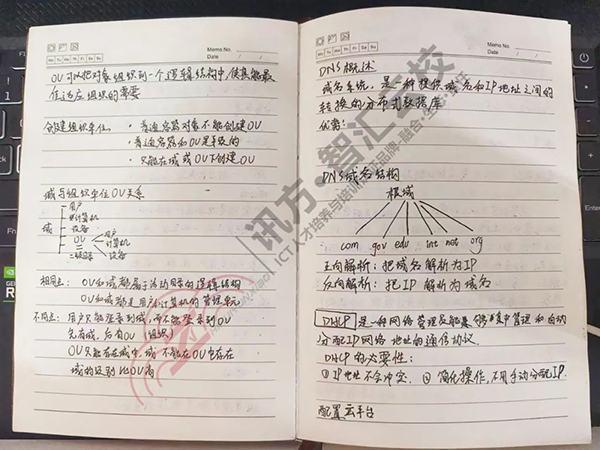 Memo No.
Mo Tu We Th Fr Sa Su
Date / /
OU可以把对象组织到一个逻辑结构中,使其能最
佳适应组织的需要
创建组织单位 · 普通容器对象不能创建OU
· 普通容器和OU是平级的
· 只能在域或OU下创建OU
域与组织单位OU关系
用户
计算机
域
设备
OU
用户
计算机
设备
相同点: OU和域都属于活动目录的逻辑结构
OU和域都是用户和计算机的管理单元
不同点: 用户只能登录到域,而不能登录到OU
先有域,后有OU
OU只能存在域中,域不能在OU中存在
域的级别比OU高
Memo No.
Mo Tu We Th Fr Sa Su
Date / /
DNS概述
域名系统,是一种提供域名和IP地址之间的
转换的分布式数据库
优势:
DNS域名结构
根域
com gov edu int net org
正向解析:把域名解析为IP
反向解析:把IP解析为域名
DHCP 是一种网络管理员能集中管理和自动
分配IP网络地址的通信协议.
DHCP的必要性:
① IP地址不会冲突. ② 简化操作,不用手动分配IP.
配置云平台
讯方·智汇云校